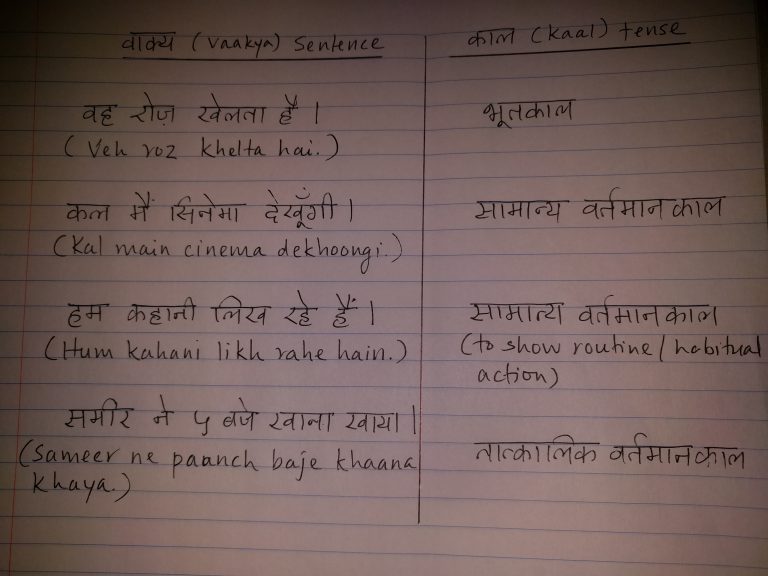 वाक्य (Vaakya) Sentence काल (Kaal) tense
वह रोज़ खेलता है । भूतकाल
(Veh roz khelta hai.)
कल मैं सिनेमा देखूँगी । सामान्य वर्तमान काल
(Kal main cinema dekhoongi.)
हम कहानी लिख रहे हैं । सामान्य वर्तमान काल
(Hum kahani likh rahe hain.) (to show routine / habitual
action)
समीर ने ५ बजे खाना खाया । तात्कालिक वर्तमान काल
(Sameer ne paanch baje khaana
khaya.)